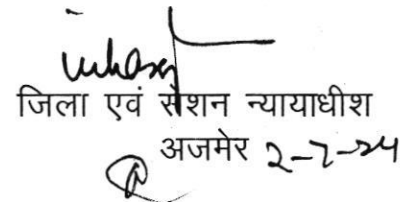 जिला एवं सेशन न्यायाधीश
अजमेर 2-7-24